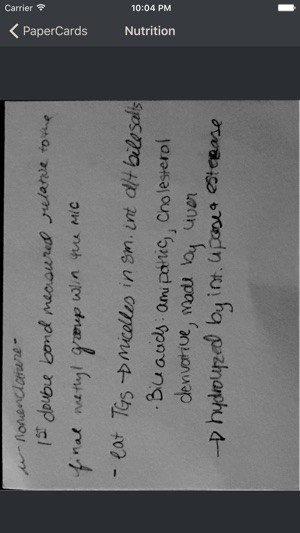 Carrier 10:04 PM
PaperCards Nutrition
w-nomenclature-
1st double bond measured relative to the
final methyl group w/in the
- eat TGs → micelles in sm. int d/t bile salts
· Bile acids: amipathic, cholesterol
derivative, made by liver
→ hydrolyzed by int. lipase + esterase